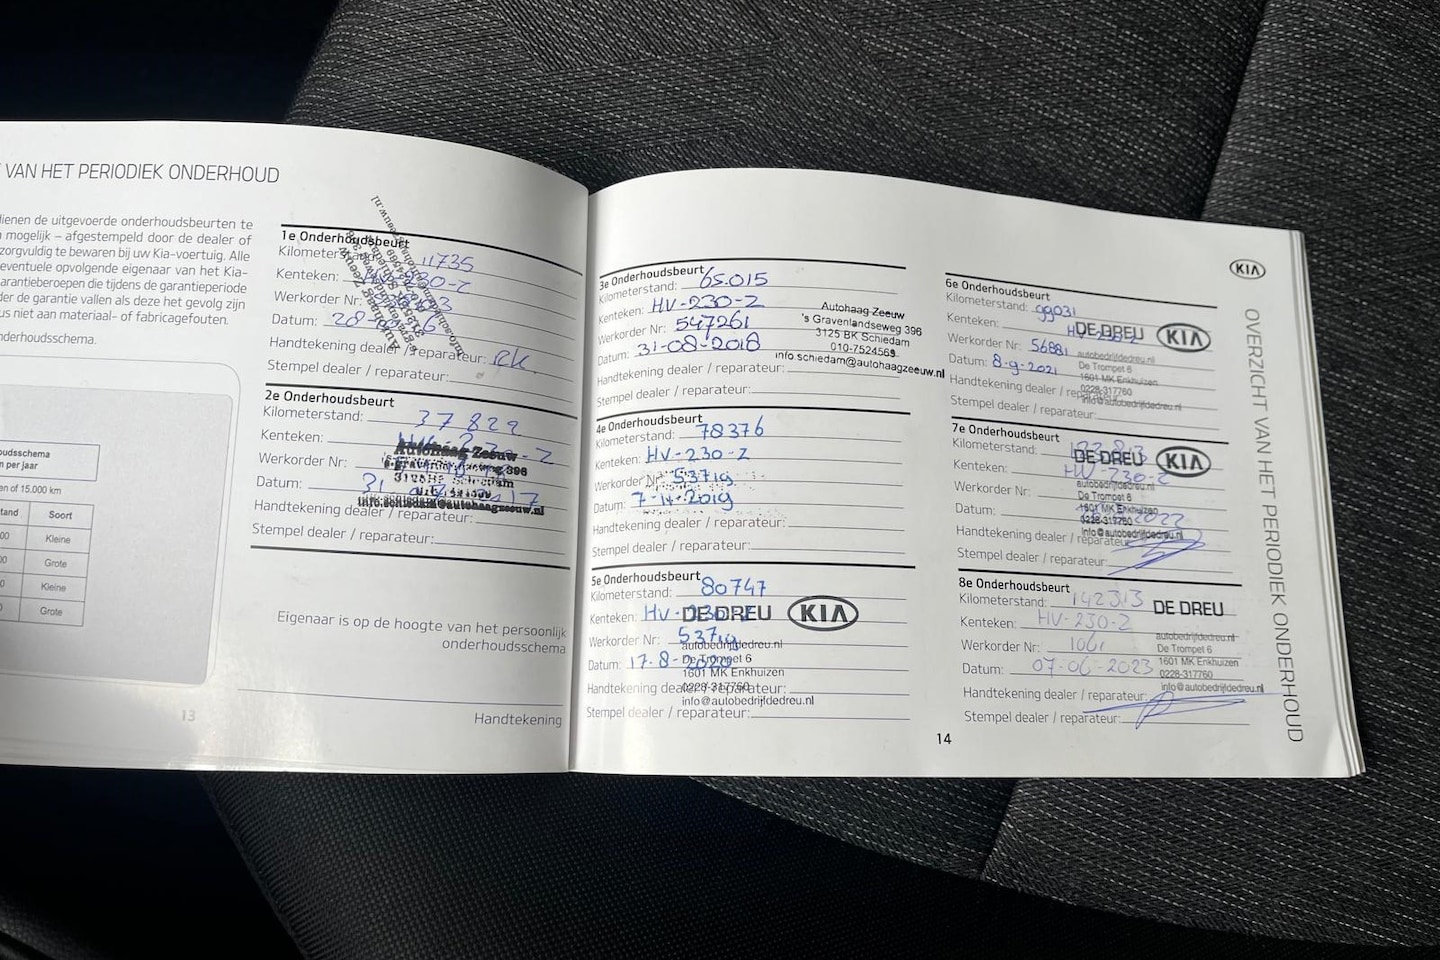 VAN HET PERIODIEK ONDERHOUD
dienen de uitgevoerde onderhoudsbeurten te
mogelijk – afgestempeld door de dealer of
zorgvuldig te bewaren bij uw Kia-voertuig. Alle
eventuele opvolgende eigenaar van het Kia-
garantieberoepen die tijdens de garantieperiode
der de garantie vallen als deze het gevolg zijn
us niet aan materiaal- of fabricagefouten.
nderhoudsschema.
oudsschema
n per jaar
en of 15.000 km
tand Soort
00 Kleine
00 Grote
0 Kleine
0 Grote
13
1e Onderhoudsbeurt
Kilometerstand: 11735
Kenteken:
Werkorder Nr:
Datum: 28
Handtekening dealer / reparateur: RK
Stempel dealer / reparateur:
Autohaag Zeeuw
2e Onderhoudsbeurt
Kilometerstand: 37829
Kenteken:
Werkorder Nr:
Datum: 31
Handtekening dealer / reparateur:
Stempel dealer / reparateur:
Autohaag Zeeuw
's-gravelandseweg 396
3125 BK Schiedam
info.schiedam@autohaagzeeuw.nl
Eigenaar is op de hoogte van het persoonlijk
onderhoudsschema
Handtekening
3e Onderhoudsbeurt
Kilometerstand: 65.015
Kenteken: HV-230-Z
Werkorder Nr: 547261
Datum: 31-08-2018
Handtekening dealer / reparateur:
Stempel dealer / reparateur:
Autohaag Zeeuw
's Gravenlandseweg 396
3125 BK Schiedam
010-7524569
info.schiedam@autohaagzeeuw.nl
4e Onderhoudsbeurt
Kilometerstand: 78376
Kenteken: HV-230-Z
Werkorder Nr: 53719
Datum: 7-14-2019
Handtekening dealer / reparateur:
Stempel dealer / reparateur:
5e Onderhoudsbeurt
Kilometerstand: 80747
Kenteken: HV-230-Z
Werkorder Nr: 53719
Datum: 17-8-2020
Handtekening dealer / reparateur:
Stempel dealer / reparateur:
DE DREU KIA
autobedrijfdedreu.nl
De Trompet 6
1601 MK Enkhuizen
0228-317760
info@autobedrijfdedreu.nl
6e Onderhoudsbeurt
Kilometerstand: 99031
Kenteken:
Werkorder Nr: 56881
Datum: 8-9-2021
Handtekening dealer / reparateur:
Stempel dealer / reparateur:
DE DREU KIA
autobedrijfdedreu.nl
De Trompet 6
1601 MK Enkhuizen
0228-317760
info@autobedrijfdedreu.nl
7e Onderhoudsbeurt
Kilometerstand:
Kenteken: HV-230-Z
Werkorder Nr:
Datum: 2022
Handtekening dealer / reparateur:
Stempel dealer / reparateur:
DE DREU KIA
autobedrijfdedreu.nl
De Trompet 6
1601 MK Enkhuizen
0228-317760
info@autobedrijfdedreu.nl
8e Onderhoudsbeurt
Kilometerstand: 142313
Kenteken: HV-230-Z
Werkorder Nr: 1061
Datum: 07-06-2023
Handtekening dealer / reparateur:
Stempel dealer / reparateur:
DE DREU
autobedrijfdedreu.nl
De Trompet 6
1601 MK Enkhuizen
0228-317760
info@autobedrijfdedreu.nl
14
KIA
OVERZICHT VAN HET PERIODIEK ONDERHOUD